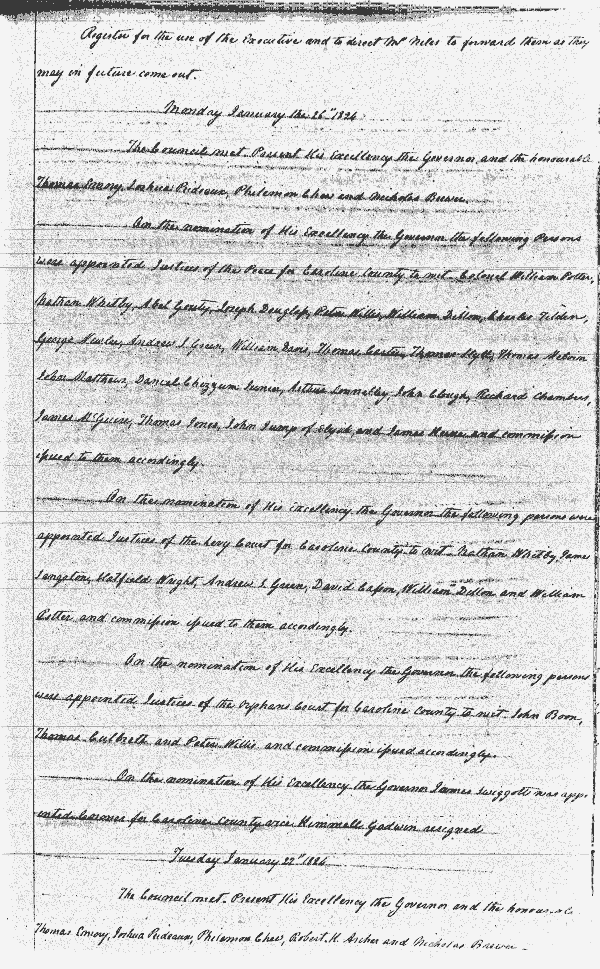 Register for the use of the Executive and to direct Mr Niles to forward them as they
may in future come out.
Monday January the 26th 1824
The Council met. Present His Excellency the Governor and the honourable
Thomas Emory, Joshua Prideaux, Philemon Chew and Nicholas Brewer.
On the nomination of His Excellency the Governor the following Persons
were appointed Justices of the Peace for Caroline County to wit. Colonel William Potter,
Nathan Whitby, Abel Gouty, Joseph Douglass, Peter Willis, William Dillon, Charles Tilden,
George Newlee, Andrew S Green, William Davis, Thomas Carter, Thomas Slyth, Thomas
John Matthews, Daniel Chezzum Junior, Arthur Connelly, John Clough, Richard Chambers,
James McGuire, Thomas Jones, John Jump of Elijah, and James and commission
issued to them accordingly.
On the nomination of His Excellency the Governor the following persons were
appointed Justices of the Levy Court for Caroline County to wit. Nathan Whitby, James
Sangston, Hatfield Wright, Andrew S Green, David Casson, William Dillon and William
Potter and commission issued to them accordingly.
On the nomination of His Excellency the Governor the following persons
were appointed Justices of the Orphans Court for Caroline County to wit John Boon,
Thomas Culbreth and Peter Willis and commission issued accordingly.
On the nomination of His Excellency the Governor James Swiggett was appo
inted Coroner for Caroline County vice Kimmell Godwin resigned
Tuesday January 27th 1824
The Council met. Present His Excellency the Governor and the honourable
Thomas Emory, Joshua Prideaux, Philemon Chew, Robert H. Archer and Nicholas Brewer